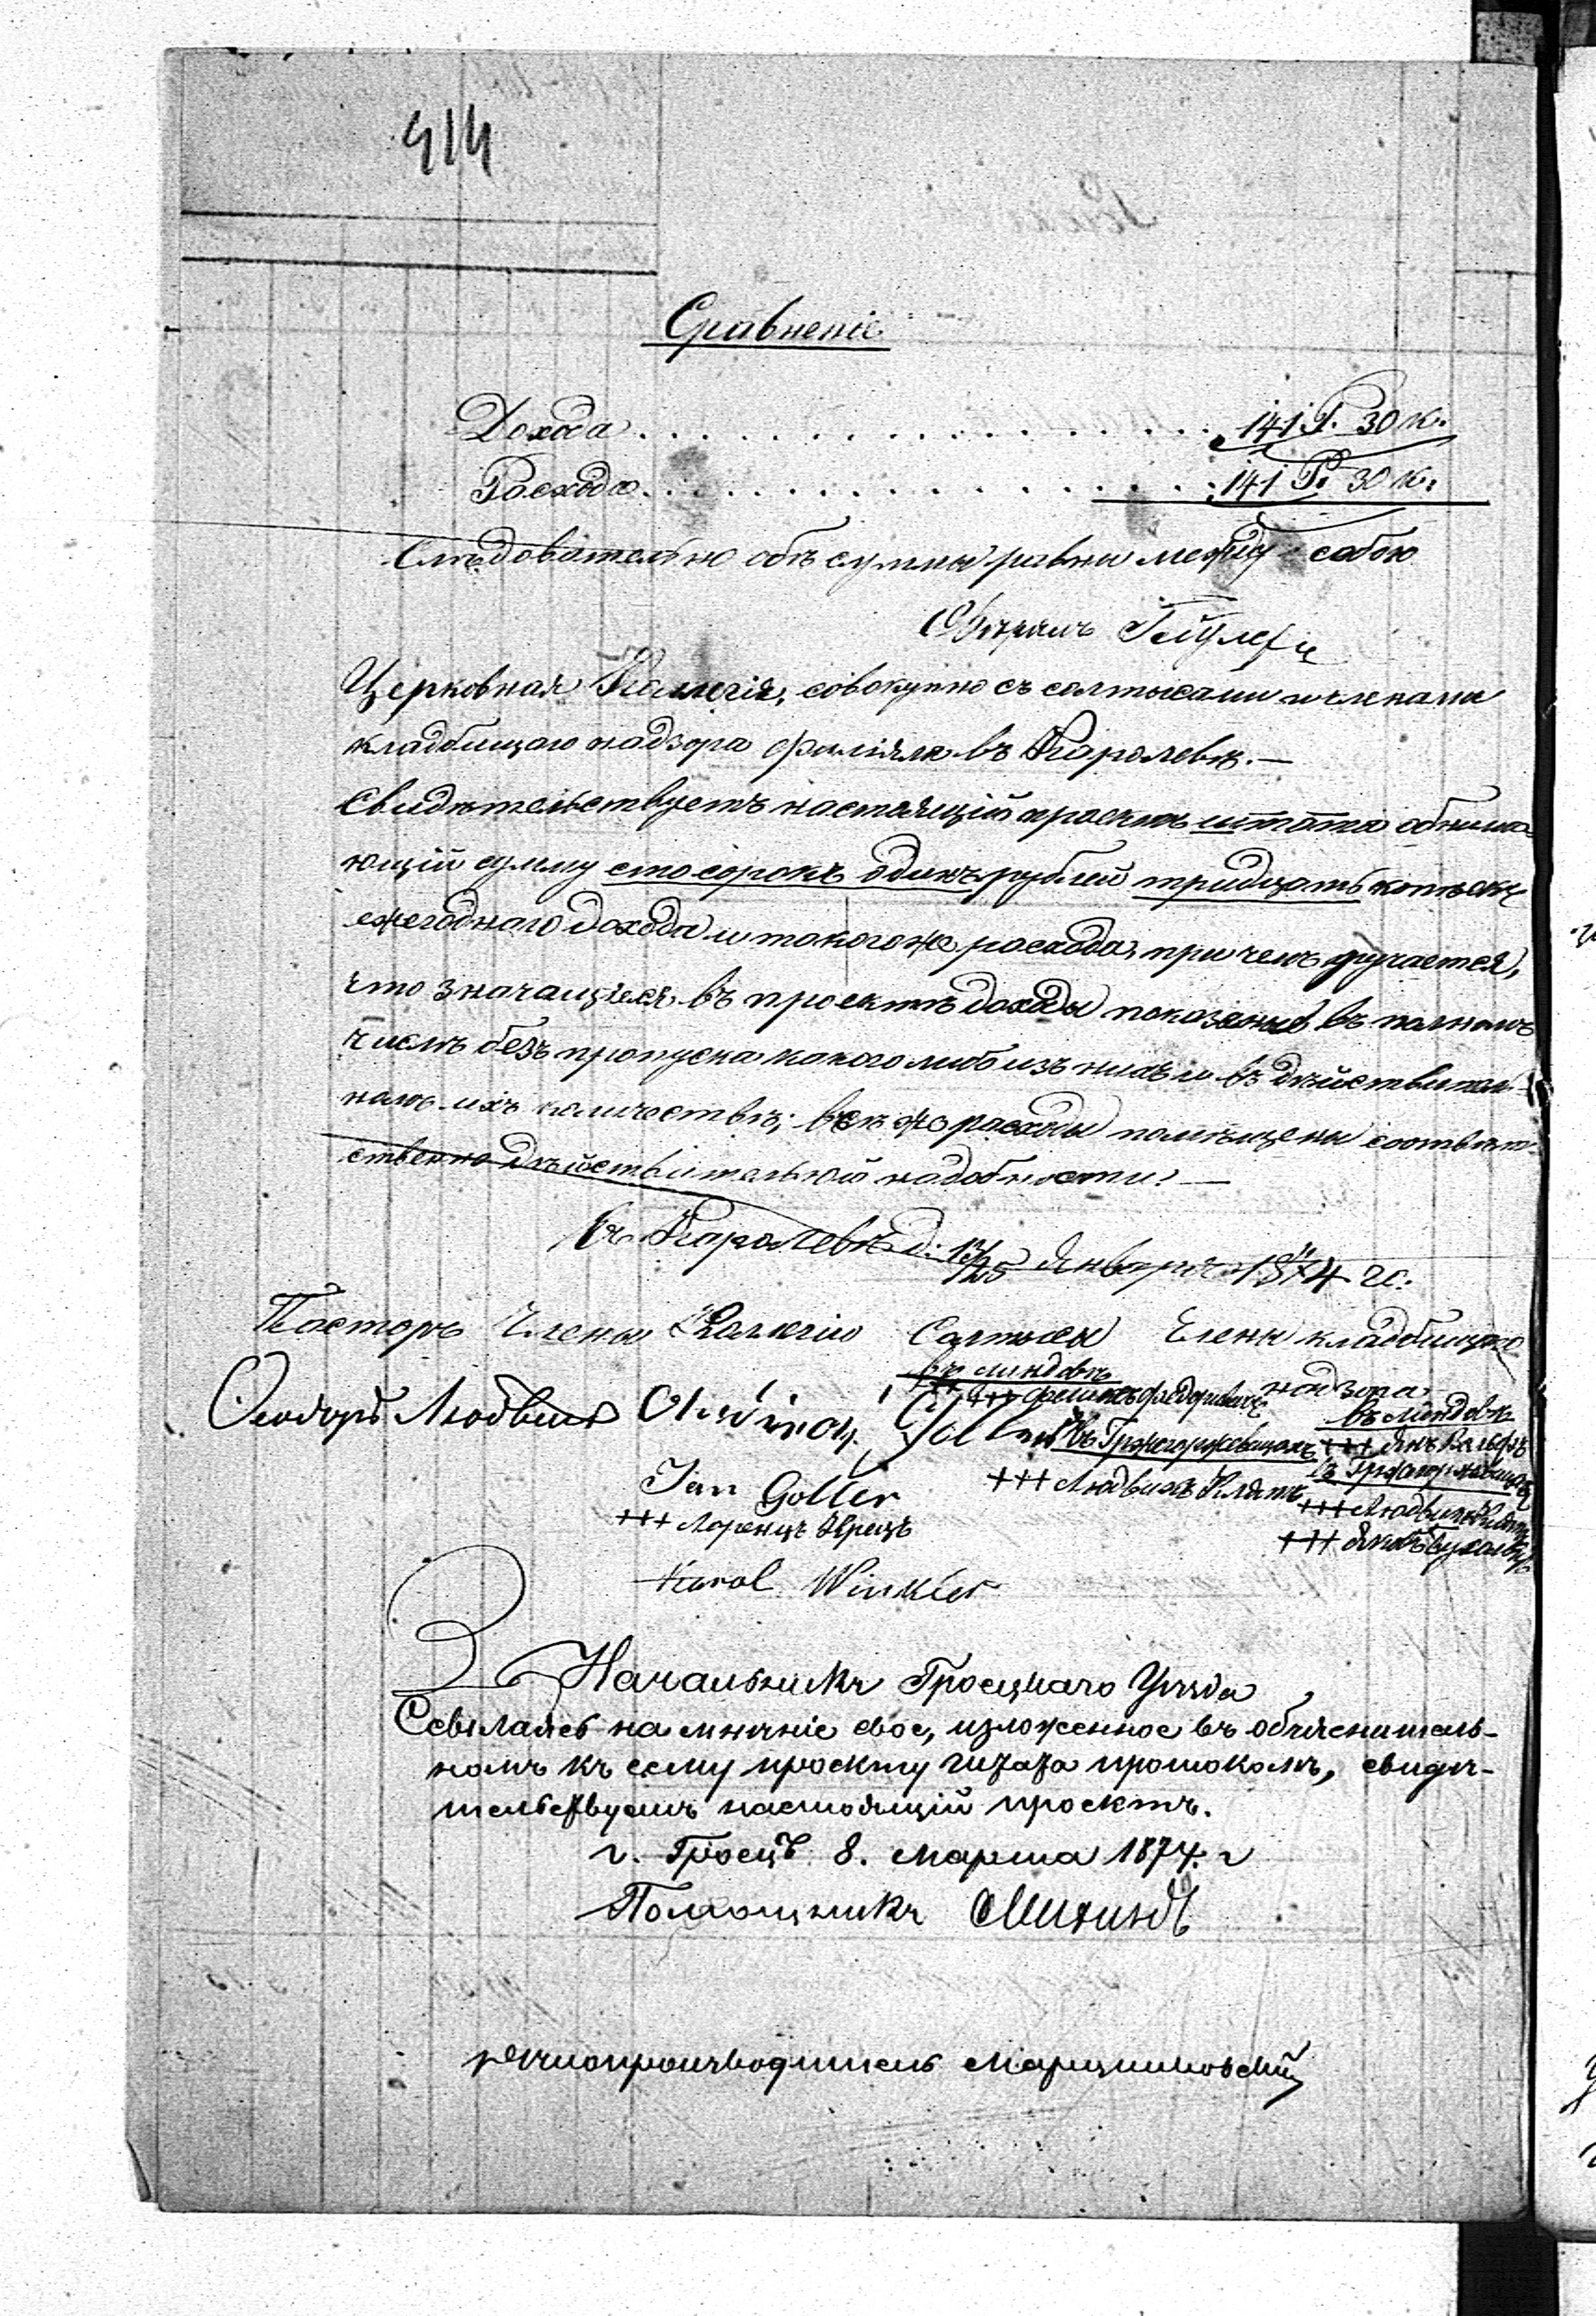 414
Сравненіе
Дохода . . . . . . . . . . . . . . . . 141 Р. 30 к.
Расхода . . . . . . . . . . . . . . . . 141 Р. 30 к.
Слѣдовательно обѣ суммы равны между собою
Церковная Колегія, совокупно съ солтысами и членами
кладбищаго надзора филіяла въ Каролевѣ. —
Свидѣтельствуетъ настоящій проектъ штата обнима-
ющій сумму сто сорокъ одинъ рублей тридцать копѣекъ
ежегоднаго дохода и такогоже расхода, при чемъ ручается,
что значащіеся въ проектѣ доходы показаные въ полномъ
числѣ безъ пропуска какого либо изъ нихъ и въ дѣйствитель-
номъ ихъ количествѣ; всѣ же расходы помѣщены соотвѣт-
ственно дѣйствительной надобности. —
въ Каролевѣ д: 13/25 Января 1874 г.
Пасторъ Члены Колегіи Солтысы Члены кладбищаго
надзора
въ Линдовѣ
въ Линдовѣ
Теодоръ Людвигъ
+++ Янъ Вольфъ
въ Гржегоржевицахъ
въ Гржегоржевицахъ
Jan Goller
+++ Людвикъ
+++ Людвикъ
+++ Лоренцъ
+++ Якобъ
Karol Winkler
За Начальника Гроецкаго Уѣзда
Ссылаясь на мнѣніе свое, изложенное въ объяснитель-
номъ къ сему проекту штата протоколѣ, свидѣ-
тельствуетъ настоящій проектъ.
г. Гроецъ 8. Марта 1874. г
Помощникъ
Дѣлопроизводитель Марцинковскій